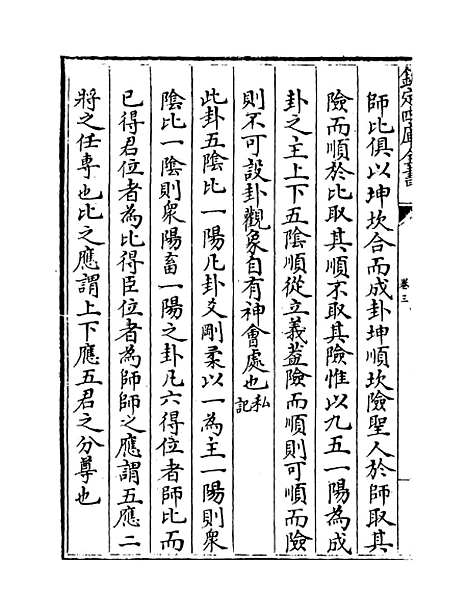 欽定四庫全書
卷三
師比俱以坤坎合而成卦坤順坎險聖人於師取其
險而順於比取其順不取其險惟以九五一陽為成
卦之主上下五陰順從立義蓋險而順則可順而險
則不可設卦觀象自有神會處也私記
此卦五陰比一陽凡卦爻剛柔以一為主一陽則衆
陰比一陰則衆陽畜一陽之卦凡六得位者師比而
已得君位者為比得臣位者為師師之應謂五應二
將之任專也比之應謂上下應五君之分尊也